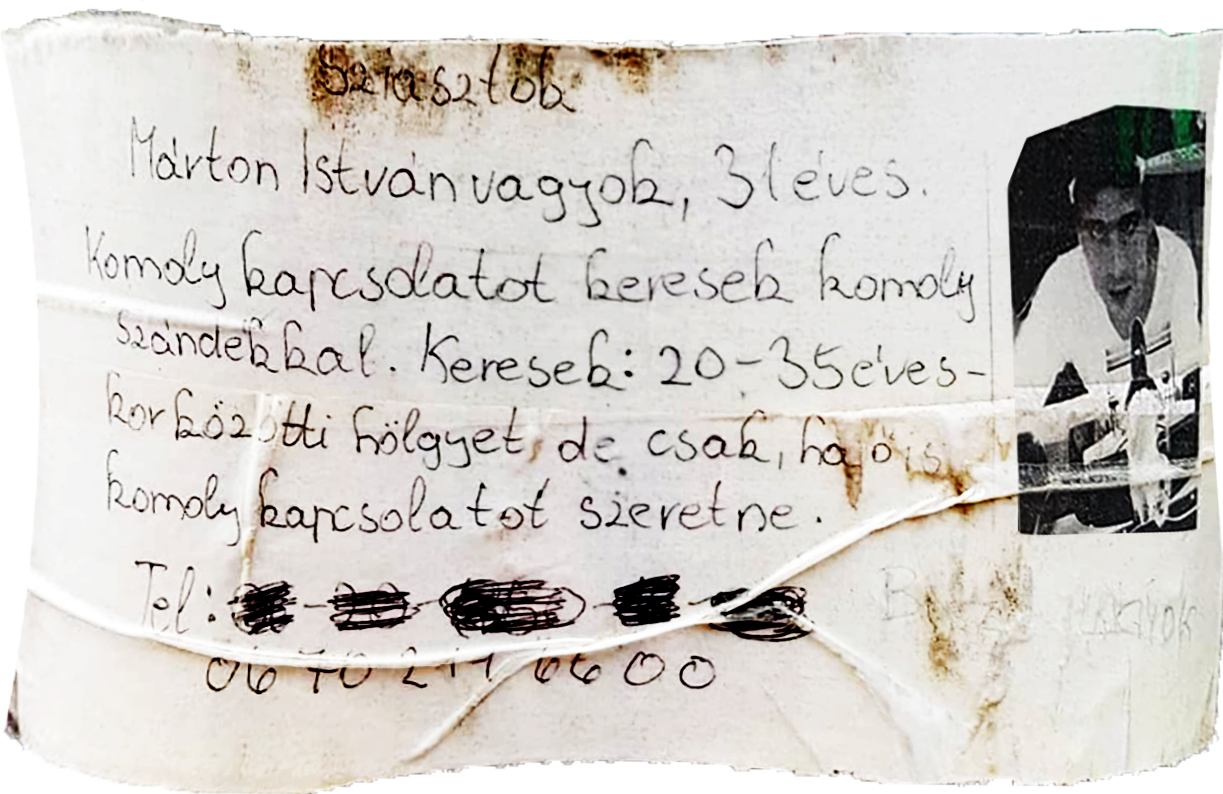 Sziasztok
Márton István vagyok, 31 éves.
Komoly kapcsolatot keresek komoly
szándékkal. Keresek: 20-35 éves-
kor közötti hölgyet, de csak, ha ő is
komoly kapcsolatot szeretne.
Tel:
06 70 2 66 00